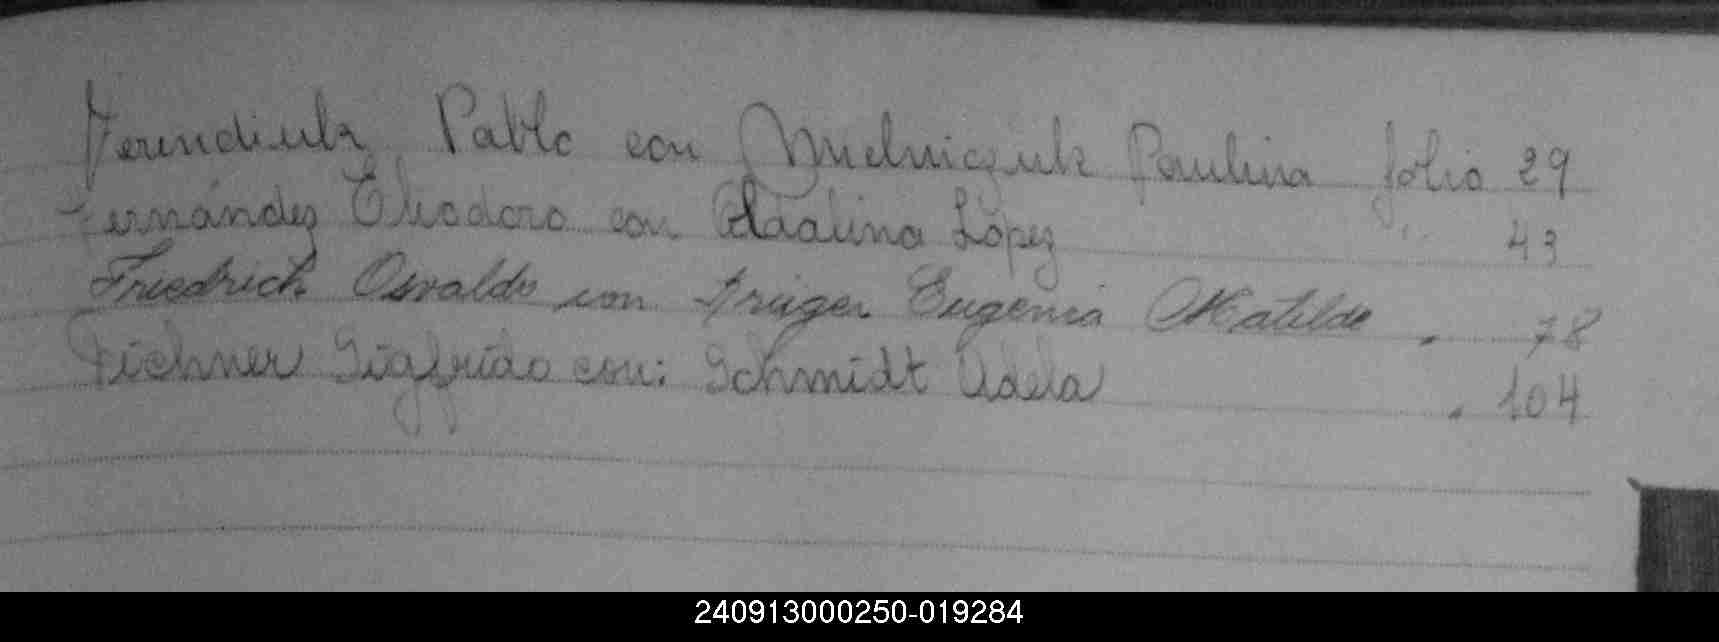 Ferendiuk Pablo con Melniczuk Paulina folio 29
Fernández Eliodoro con Adalina López " 43
Friedrich Osvaldo con Krüger Eugenia Matilde . 78
Fichner Sigfrido con: Schmidt Adela . 104
240913000250-019284